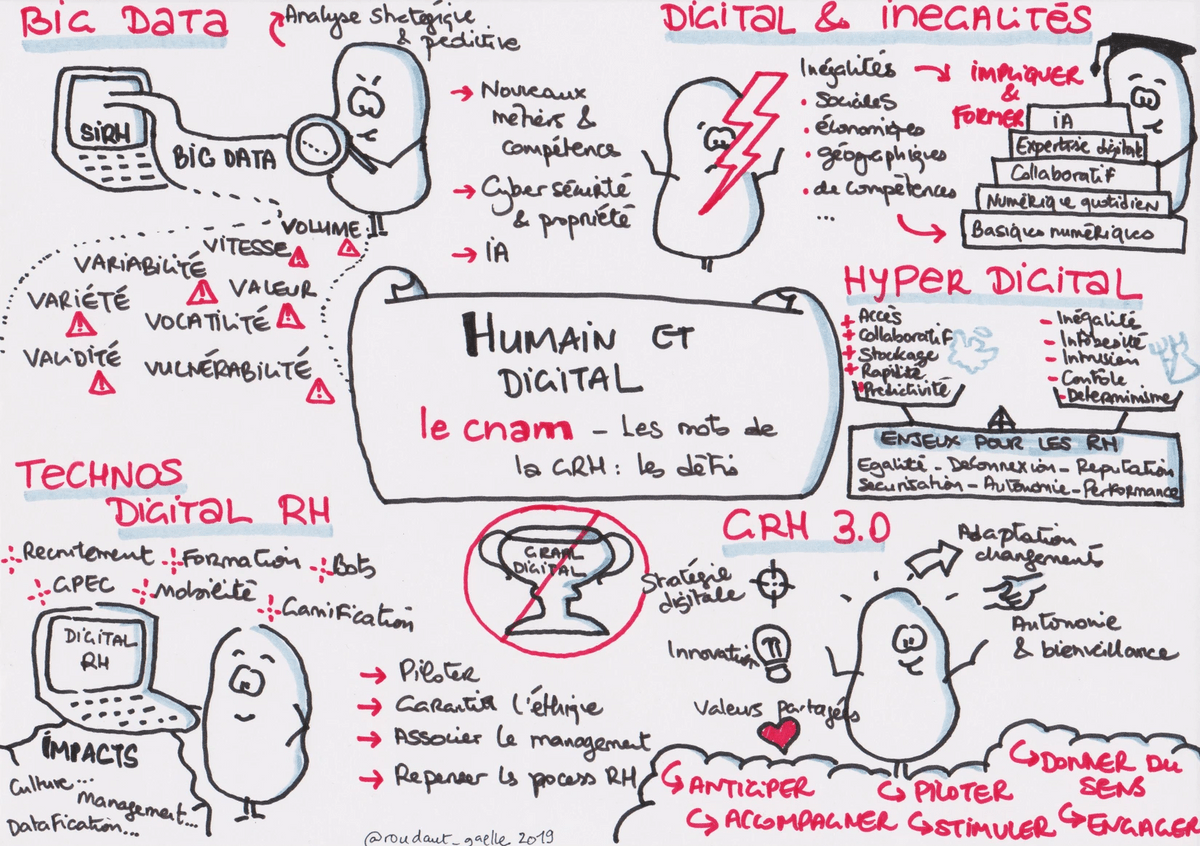 BIG DATA
Analyse stratégique
& pédictive
SIRH
BIG DATA
→ Nouveaux
métiers &
compétence
→ Cyber sécurité
& propriété
→ IA
VOLUME
VITESSE
VARIABILITÉ
VALEUR
VARIÉTÉ
VOCATILITÉ
VALIDITÉ
VULNÉRABILITÉ
DIGITAL & INEGALITÉS
Inégalités
• Sociales
• économiques
• géographiques
• de compétences
...
IMPLIQUER
&
FORMER
IA
Expertise digitale
Collaboratif
Numérique quotidien
Basiques numériques
HUMAIN ET
DIGITAL
le cnam – Les mots de
la GRH : les défis
HYPER DIGITAL
+ Accès
+ Collaboratif
+ Stockage
+ Rapilité
+ Prédictivité
- Inégalité
- Infobésité
- Intrusion
- Contrôle
- Determinisme
ENJEUX POUR LES RH
Egalité - Déconnexion - Reputation
Securisation - Autonomie - Performance
TECHNOS
DIGITAL RH
Recrutement
Formation
Bots
GPEC
Mobilité
Gamification
DIGITAL
RH
IMPACTS
Culture...
Management...
Datafication...
GRAAL
DIGITAL
→ Piloter
→ Garantir l'éthique
→ Associer le management
→ Repenser les pocess RH
GRH 3.0
Stratégie
digitale
Innovation
Valeurs partagées
Adaptation
changements
Autonomie
& bienveillance
ANTICIPER
PILOTER
DONNER DU
SENS
ACCOMPAGNER
STIMULER
ENGAGER
@roudaut_gaelle 2019